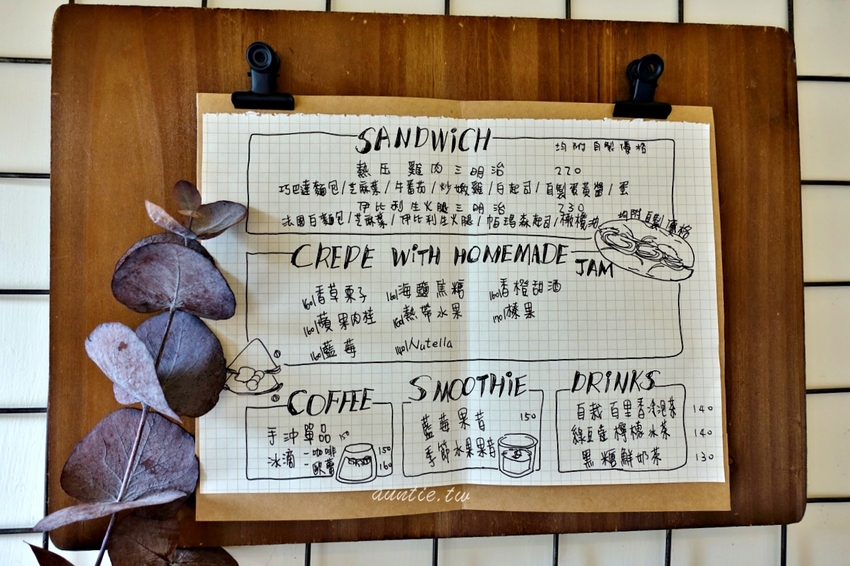 SANDWiCH
均附自製優格
熱压雞肉三明治 220
巧巴達麵包/芝麻葉/牛番茄/炒嫩雞/白起司/自製蛋黃醬/蛋
伊比利生火腿三明治 230
法國白麵包/芝麻葉/伊比利生火腿/帕瑪森起司/橄欖油
均附自製優格
CREPE WiTH HOMEMADE JAM
160/香草栗子 160/海鹽焦糖 160/香橙甜酒
160/蘋果肉桂 160/熱帶水果 170/榛果
160/藍莓 140/Nutella
COFFEE
手沖單品 150
冰滴 -咖啡 150
-歐蕾 160
SMOOTHiE
藍莓果昔 150
季節水果果昔
DRiNKS
自栽百里香冷泡茶 140
綠豆崔檸檬冰茶 140
黑糖鮮奶茶 130
auntie.tw